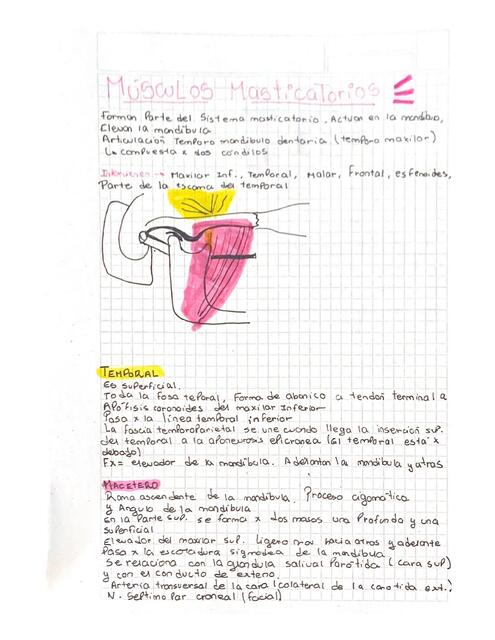 Músculos Masticatorios
Forman Parte del Sistema masticatorio. Actuan en la mandibula,
Elevan la mandibula
Articulación Temporo mandibulo dentaria (temporo maxilar)
Compuesta x dos condilos
Intervienen → Maxilar Inf., Temporal, Malar, Frontal, esfenoides,
Parte de la escama del temporal
TEMPORAL
Es superficial.
Toda la fosa temporal, forma de abanico a tendon terminal a
Apófisis coronoides del maxilar Inferior
Pasa x la linea temporal inferior
La fascia temporoparietal se une cuando llega la insercion sup.
del temporal a la aponeurosis epicranea (el temporal esta x
debajo)
Fx= elevador de la mandibula. Adelantan la mandibula y atras
MACETERO
Rama ascendente de la mandibula. Proceso cigomotico
y Angulo de la mandibula
en la parte sup. se forma x dos masas una Profunda y una
superficial
Elevador del maxilar sup. Ligero mov hacia atras y adelante
Pasa x la escotadura sigmodea de la mandibula
Se relaciona con la glandula salival Parótida (cara sup)
y con el conducto de esteno.
Arteria transversal de la cara (colateral de la carotida ext.)
N. Septimo Par craneal (facial)